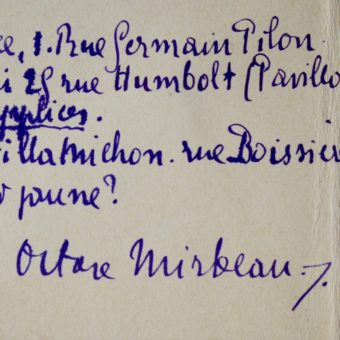 ce, 1. Rue Germain Pilon.
i 25 rue Humbolt (Pavillo
pplices.
illa Michon. rue Boissiè
jaune?
Octave Mirbeau